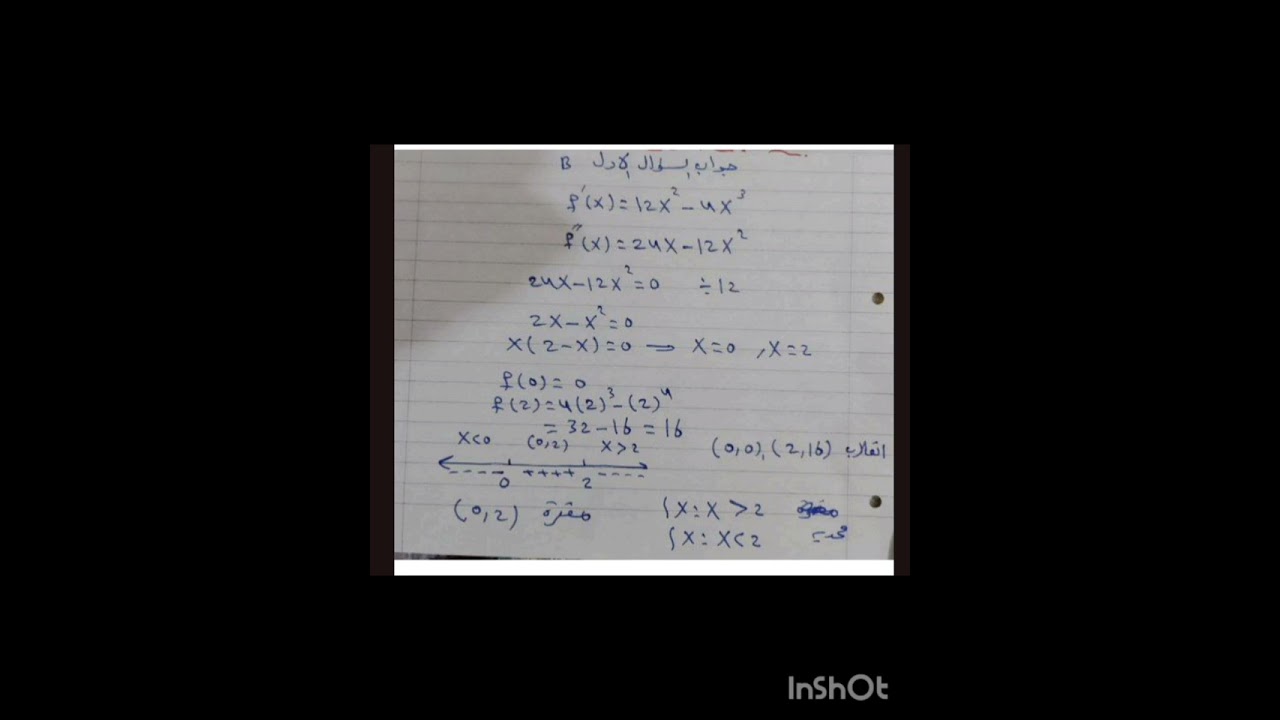 جواب السؤال الاول B
f'(x) = 12x² - 4x³
f''(x) = 24x - 12x²
24x - 12x² = 0 ÷12
2x - x² = 0
x(2-x) = 0 → x=0 , x=2
f(0) = 0
f(2) = 4(2)³ - (2)⁴
= 32 - 16 = 16
x<0 (0,2) x>2
(0,0), (2,16) انقلاب
---- ++++ ----
0 2
(0,2) مقعرة
{x : x > 2
{x : x < 2
InShOt